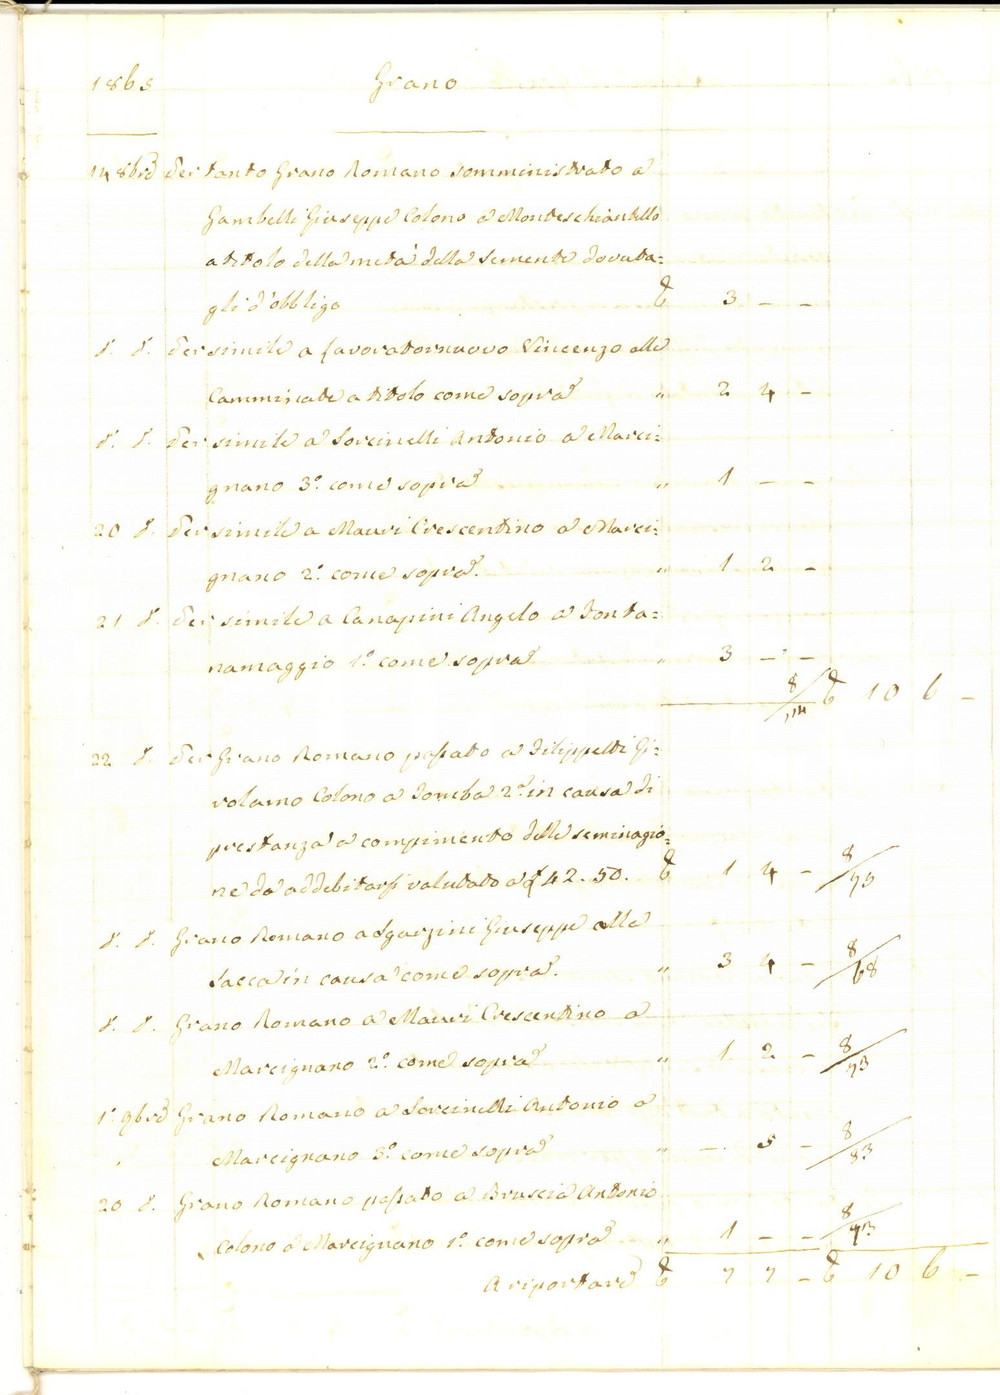 1865 Grano
14 8bre Per tanto Grano Romano somministrato a
Gambelli Giuseppe Colono a Monteschiantello
a titolo della metà della semente dovuta=
gli d'obbligo 3 – –
d. d. Per simile a Lavoratornuovo Vincenzo alle
Camminate a titolo come sopra " 2 4 –
d. d. Per simile a Sorcinelli Antonio a Marci=
gnano 3.° come sopra " 1 – –
20 d. Per simile a Mauri Crescentino a Marci=
gnano 2.° come sopra. " 1 2 –
21 d. Per simile a Canapini Angelo a Fonta=
namaggio 1.° come sopra " 3 – –
8/114 10 6 –
22 d. Per Grano Romano passato a Filippetti Gi=
rolamo Colono a Tomba 2.° in causa di
prestanza a compimento delle seminagio=
ne da addebitarsi valutato a £ 42.50. 1 4 – 8/73
d. d. Grano Romano a Sgarzini Giuseppe alla
Sacca in causa come sopra. " 3 4 – 8/68
d. d. Grano Romano a Mauri Crescentino a
Marcignano 2.° come sopra " 1 2 – 8/93
1.° 9bre Grano Romano a Sorcinelli Antonio a
Marcignano 3.° come sopra " – 5 – 8/83
20 d. Grano Romano passato a Bruscia Antonio
Colono a Marcignano 1.° come sopra " 1 – – 8/93
A riportare 7 7 – 10 6 –